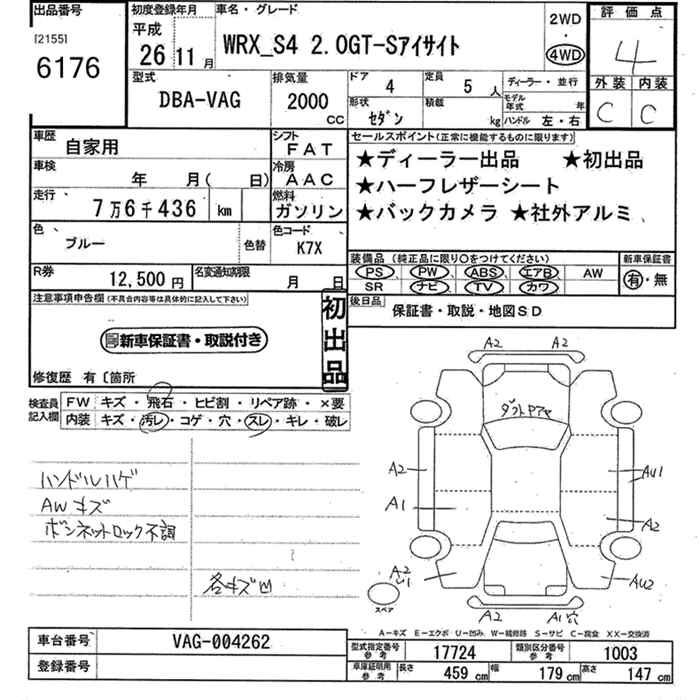 出品番号 初度登録年月 車名・グレード 2WD 評価点
[2155] 平成 4
6176 26 11月 WRX_S4 2.0GT-Sアイサイト 4WD
外装 内装
型式 排気量 ドア 4 定員 5人 ディーラー・並行 C C
DBA-VAG 2000 モデル年式 年
CC 形状 セダン 積載 kg ハンドル 左・右
車歴 自家用 シフト FAT セールスポイント(正常に機能するものに限ります)
★ディーラー出品 ★初出品
車検 年 月( 日) 冷房 AAC
★ハーフレザーシート
走行 7万6千436 km 燃料 ガソリン
★バックカメラ ★社外アルミ
色 ブルー 色替 色コード K7X
装備品(純正品に限り○をつけてください) 新車保証書
PS PW ABS エアB AW 有・無
R券 12,500円 名変通知期限 月 日
SR ナビ TV カワ
注意事項申告欄(不具合内容等は具体的に記入して下さい) 初出品 後日品 保証書・取説・地図SD
新車保証書・取説付き
修復歴 有〔箇所
検査員記入欄 FW キズ・飛石・ヒビ割・リペア跡・×要
内装 キズ・汚レ・コゲ・穴・スレ・キレ・破レ
A2 A2
ダッシュ
A2 AU1
ハンドルハゲ
A1
AWキズ
A2
ボンネットロック不調
A2
U1 AU2
各キズ凹
スペア
A2 A1穴
A-キズ E-エクボ U-凹み W-補修跡 S-サビ C-腐食 XX-交換済
車台番号 VAG-004262
型式指定番号 参考 17724 類別区分番号 参考 1003
登録番号
車庫証明用 参考 長さ 459 cm 幅 179 cm 高さ 147 cm